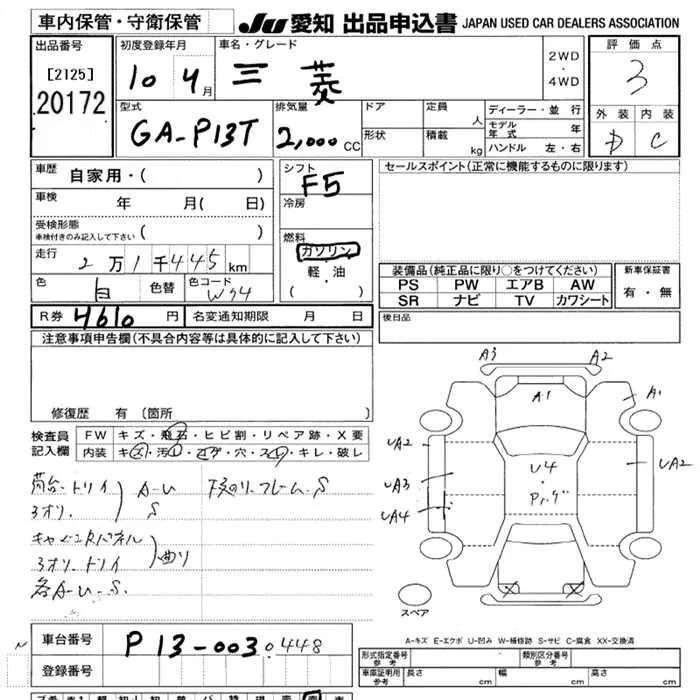 車内保管・守衛保管
JU 愛知 出品申込書 JAPAN USED CAR DEALERS ASSOCIATION
出品番号
[2125]
20172
初度登録年月
10 4月
車名・グレード
三菱
2WD
・
4WD
評価点
3
外装 内装
D C
型式
GA-P13T
排気量
2,000CC
ドア
形状
定員
人
積載
kg
ディーラー・並行
モデル年式 年
ハンドル 左・右
車歴
自家用・( )
車検
年 月( 日)
受検形態
車検付きのみ記入して下さい ( )
走行
2万1千445km
色
白
色替
色コード
W94
シフト
F5
冷房
燃料
ガソリン
軽・油
( )
セールスポイント(正常に機能するものに限ります)
装備品(純正品に限り○をつけてください)
PS PW エアB AW
SR ナビ TV カワシート
新車保証書
有・無
R券 4610円 名変通知期限 月 日
後日品
注意事項申告欄(不具合内容等は具体的に記入して下さい)
修復歴 有(箇所
検査員
記入欄
FW キズ・飛石・ヒビ割・リペア跡・X要
内装 キズ・汚れ・コゲ・穴・スレ・キレ・破レ
荷台.トリイ
3オリ.
A-U
S
下廻り.フレーム.S
3オリ.トリイ
曲り
各A-U.S.
A3 A2
A1 A1
UA2 UA2
UA3
UA4
U4
・
X X
スペア
A-キズ E-エクボ U-凹み W-補修跡 S-サビ C-腐食 XX-交換済
車台番号
P13-0030448
登録番号
形式指定番号
参考
類別区分番号
参考
車庫証明用
参考
長さ cm 幅 cm 高さ cm